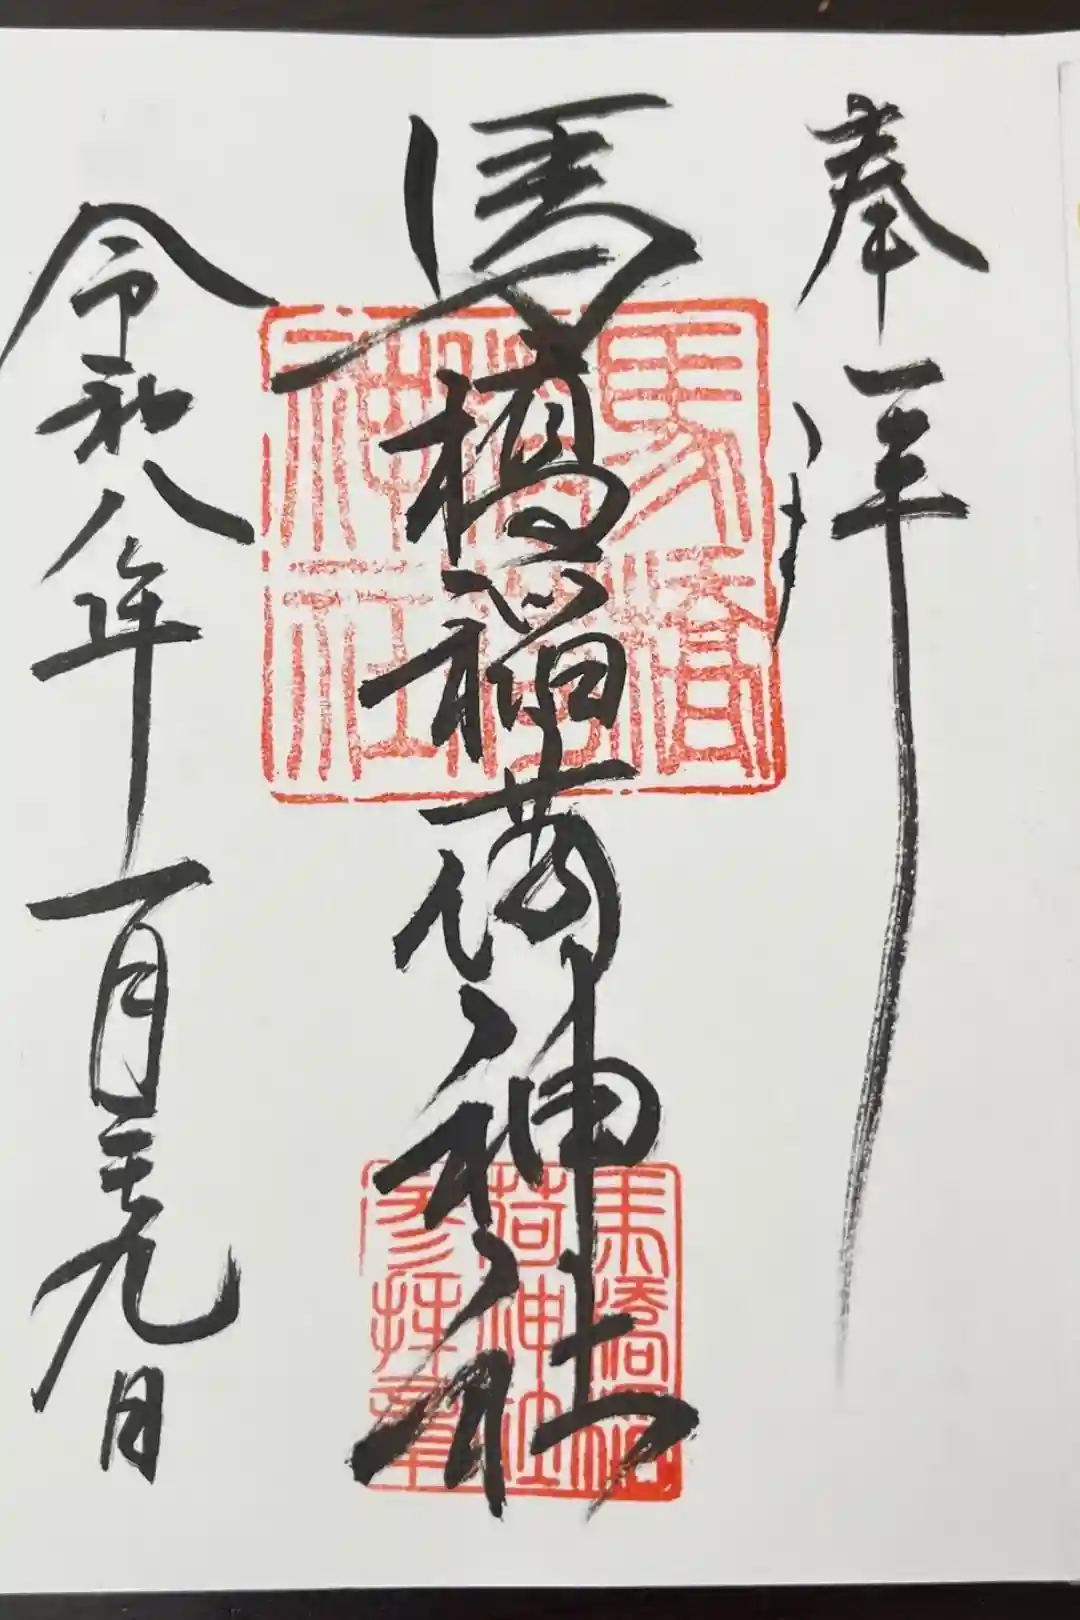 奉拝
馬橋稲荷神社
令和八年一月二十九日
馬橋稲荷神社
馬橋稲荷神社参拝章